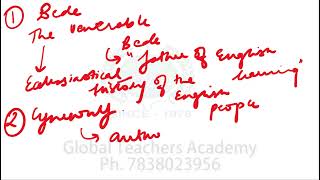 ① Bede
The Venerable
Bede
↳ "father of English learning"
Ecclesiastical History of the English people
② Cynewulf
↳ autho
Global Teachers Academy
Ph. 7838023956